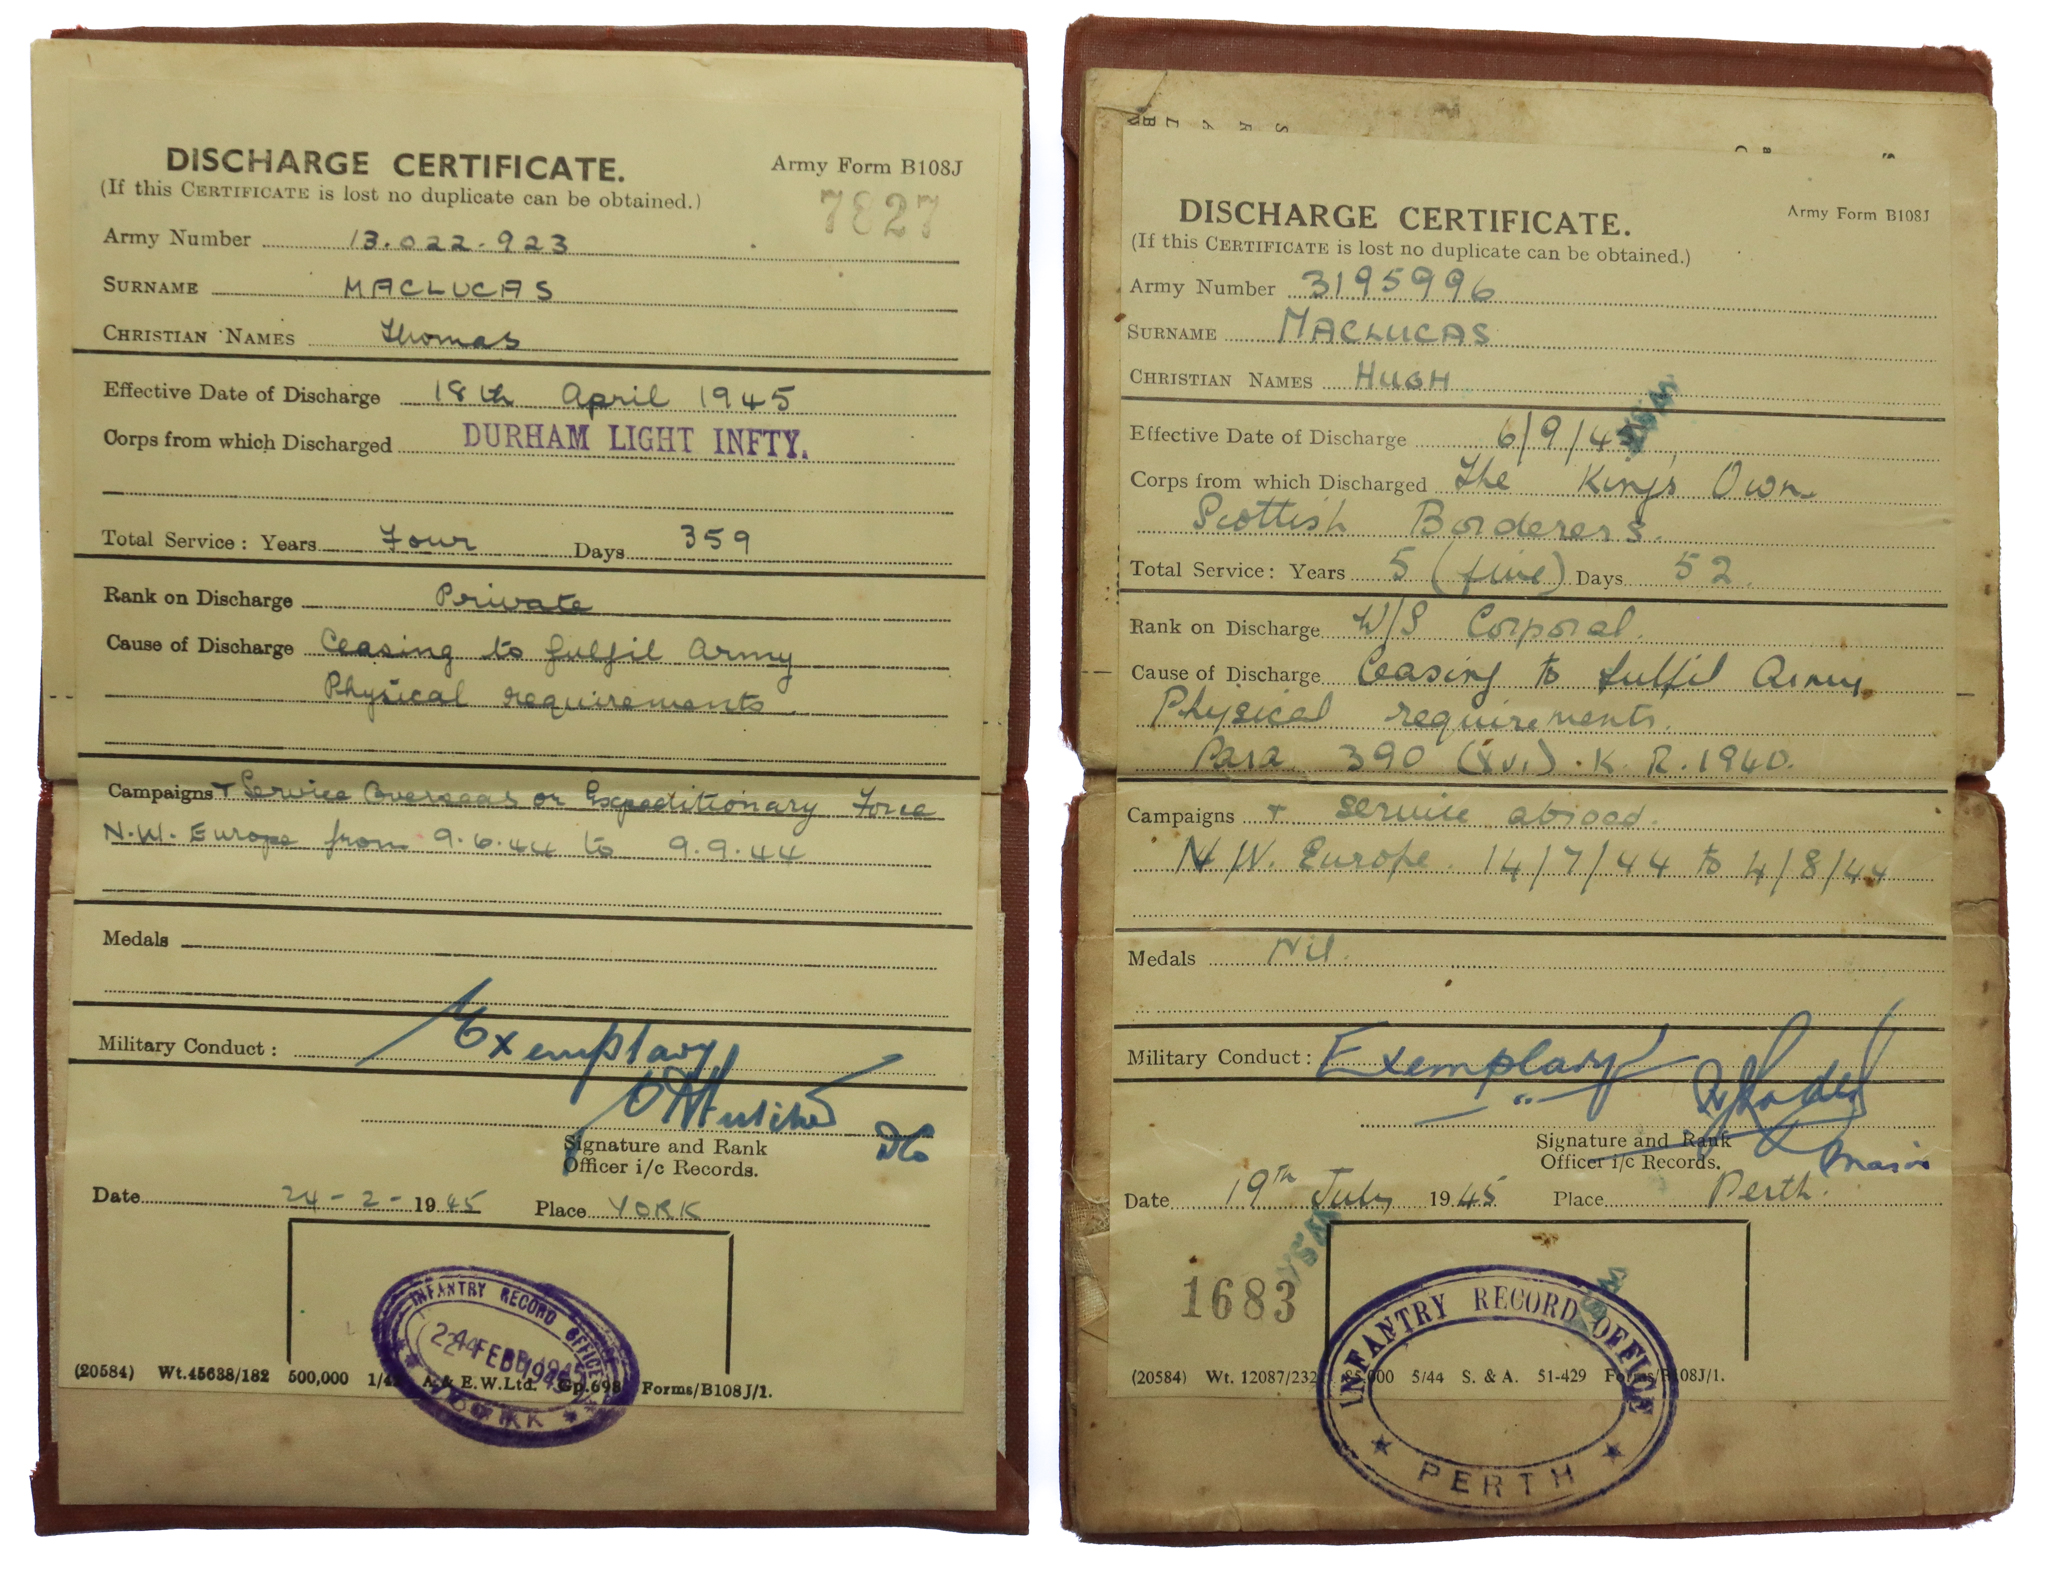 DISCHARGE CERTIFICATE. Army Form B108J
(If this CERTIFICATE is lost no duplicate can be obtained.) 7827
Army Number 13.022.923
SURNAME MACLUCAS
CHRISTIAN NAMES Thomas
Effective Date of Discharge 18th April 1945
Corps from which Discharged DURHAM LIGHT INFTY.
Total Service: Years Four Days 359
Rank on Discharge Private
Cause of Discharge Ceasing to fulfil Army
Physical requirements
Campaigns + Service Overseas or Expeditionary Force
N.W. Europe from 9.6.44 to 9.9.44
Medals
Military Conduct: Exemplary
Signature and Rank
Officer i/c Records.
Date 24-2-1945 Place YORK
INFANTRY RECORD OFFICE
24 FEB 1945
YORK
(20584) Wt.45638/182 500,000 A. & E.W.Ltd. Gp.698 Forms/B108J/1.
DISCHARGE CERTIFICATE. Army Form B108J
(If this CERTIFICATE is lost no duplicate can be obtained.)
Army Number 3195996
SURNAME MACLUCAS
CHRISTIAN NAMES HUGH
Effective Date of Discharge 6/9/45
Corps from which Discharged The King's Own
Scottish Borderers.
Total Service: Years 5 (five) Days 52.
Rank on Discharge W/S Corporal.
Cause of Discharge Ceasing to fulfil Army
Physical requirements.
Para 390 (xvi). K. R. 1940.
Campaigns + service abroad.
N.W. Europe. 14/7/44 to 4/8/44
Medals Nil.
Military Conduct: Exemplary
Signature and Rank
Officer i/c Records. Major
Date 19th July 1945 Place Perth.
1683
INFANTRY RECORD OFFICE
PERTH
(20584) Wt. 12087/232 000 5/44 S. & A. 51-429 Forms/B108J/1.